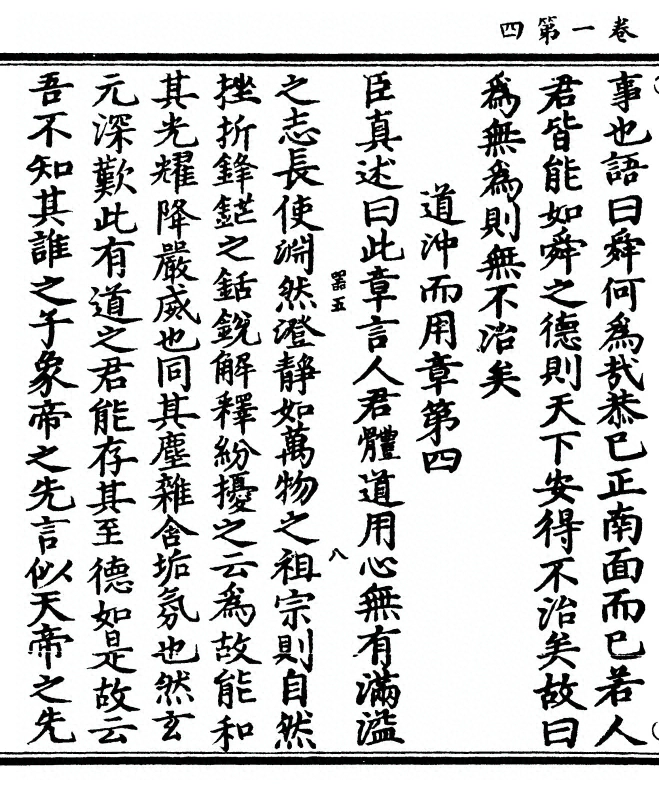 卷一第四
事也語曰舜何爲哉恭已正南面而已若人
君皆能如舜之德則天下安得不治矣故曰
爲無爲則無不治矣
道沖而用章第四
臣真述曰此章言人君體道用心無有滿溢
器五
八
之志長使淵然澄靜如萬物之祖宗則自然
挫折鋒鋩之銛銳解釋紛擾之云爲故能和
其光耀降嚴威也同其塵雜舍垢氛也然玄
元深歎此有道之君能存其至德如是故云
吾不知其誰之子象帝之先言似天帝之先